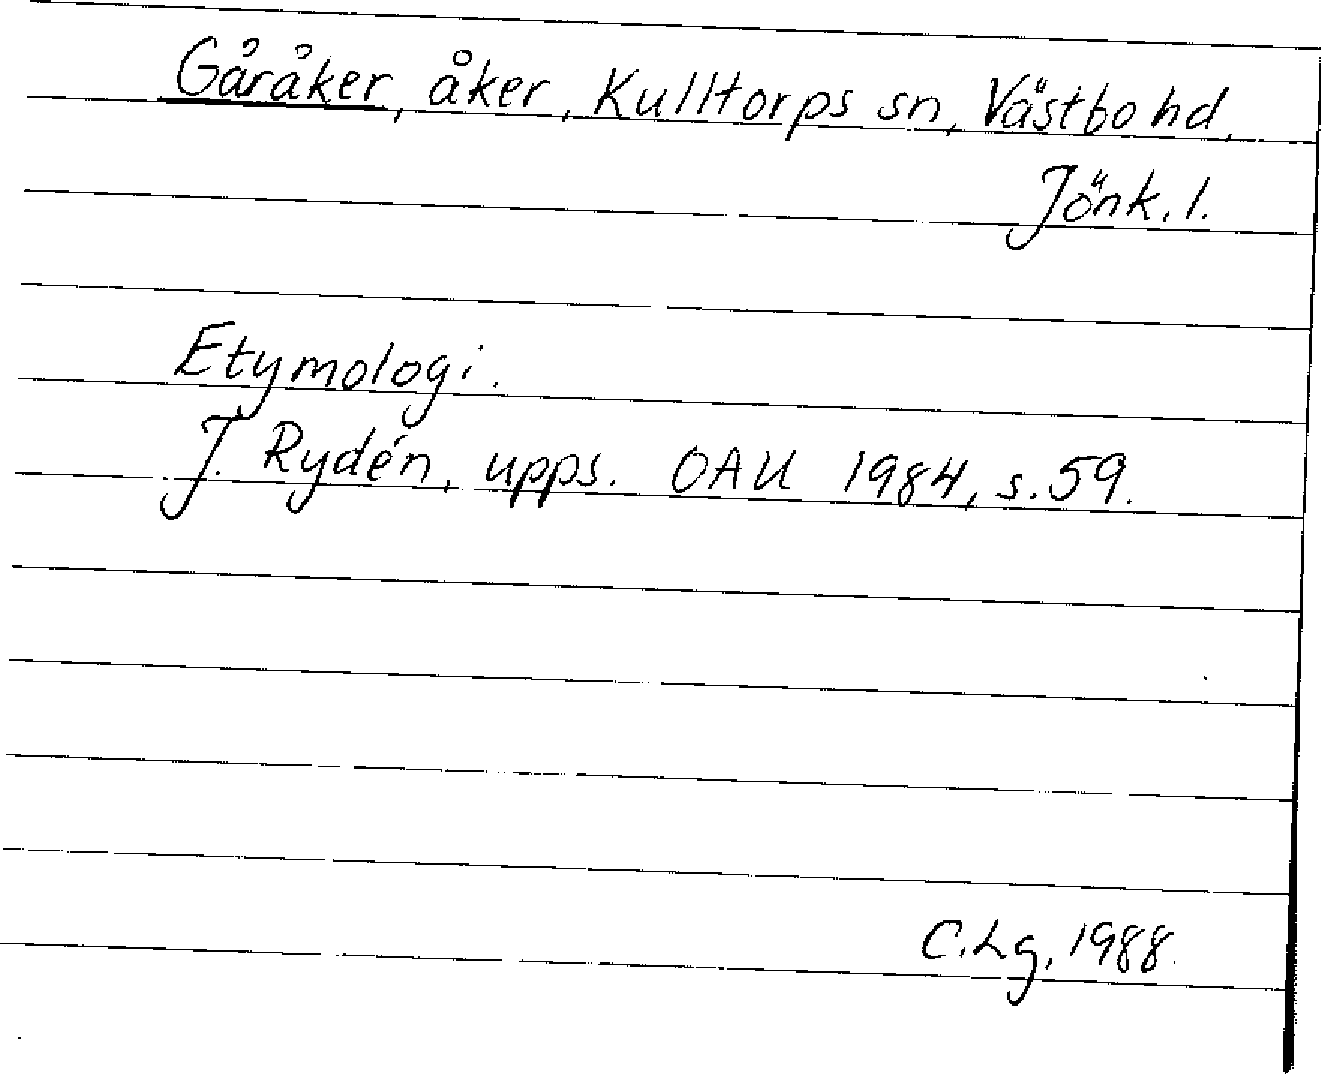 Gåråker, åker, Kulltorps sn, Västbo hd,
Jönk. l.
Etymologi.
J. Rydén, upps. OAU 1984, s. 59.
C. Lg, 1988.